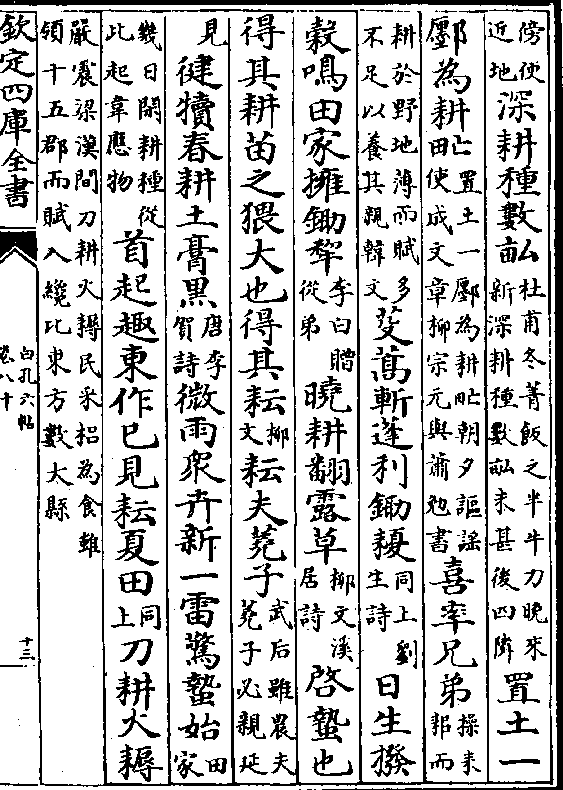 傍使近地深耕種數畝杜甫冬菁飯之半牛刀晚來新深耕種數畝未甚後四隣置土一
鄽為耕甿置土一鄽為耕甿朝夕謳謠使成文章柳宗元與蕭俛書喜率兄弟操耒耜而
耕於野地薄而賦多不足以養其親韓文芟蒿斬蓬利鋤耰同上劉生詩日生撥
穀鳴田家擁鋤犂李白贈從弟曉耕翻露草柳文溪居詩啓蟄也
得其耕苗之猥大也得其耘柳文耘夫蕘子武后雖農夫蕘子必親延
見健犢春耕土膏黑唐李賀詩微雨衆卉新一雷驚蟄始田家
幾日閒耕種從此起韋應物首起趣東作已見耘夏田同上刀耕火耨
嚴震梁漢間刀耕火耨民采梠為食雖領十五郡而賦入纔比東方數大縣
欽定四庫全書
白孔六帖
卷八十
十三